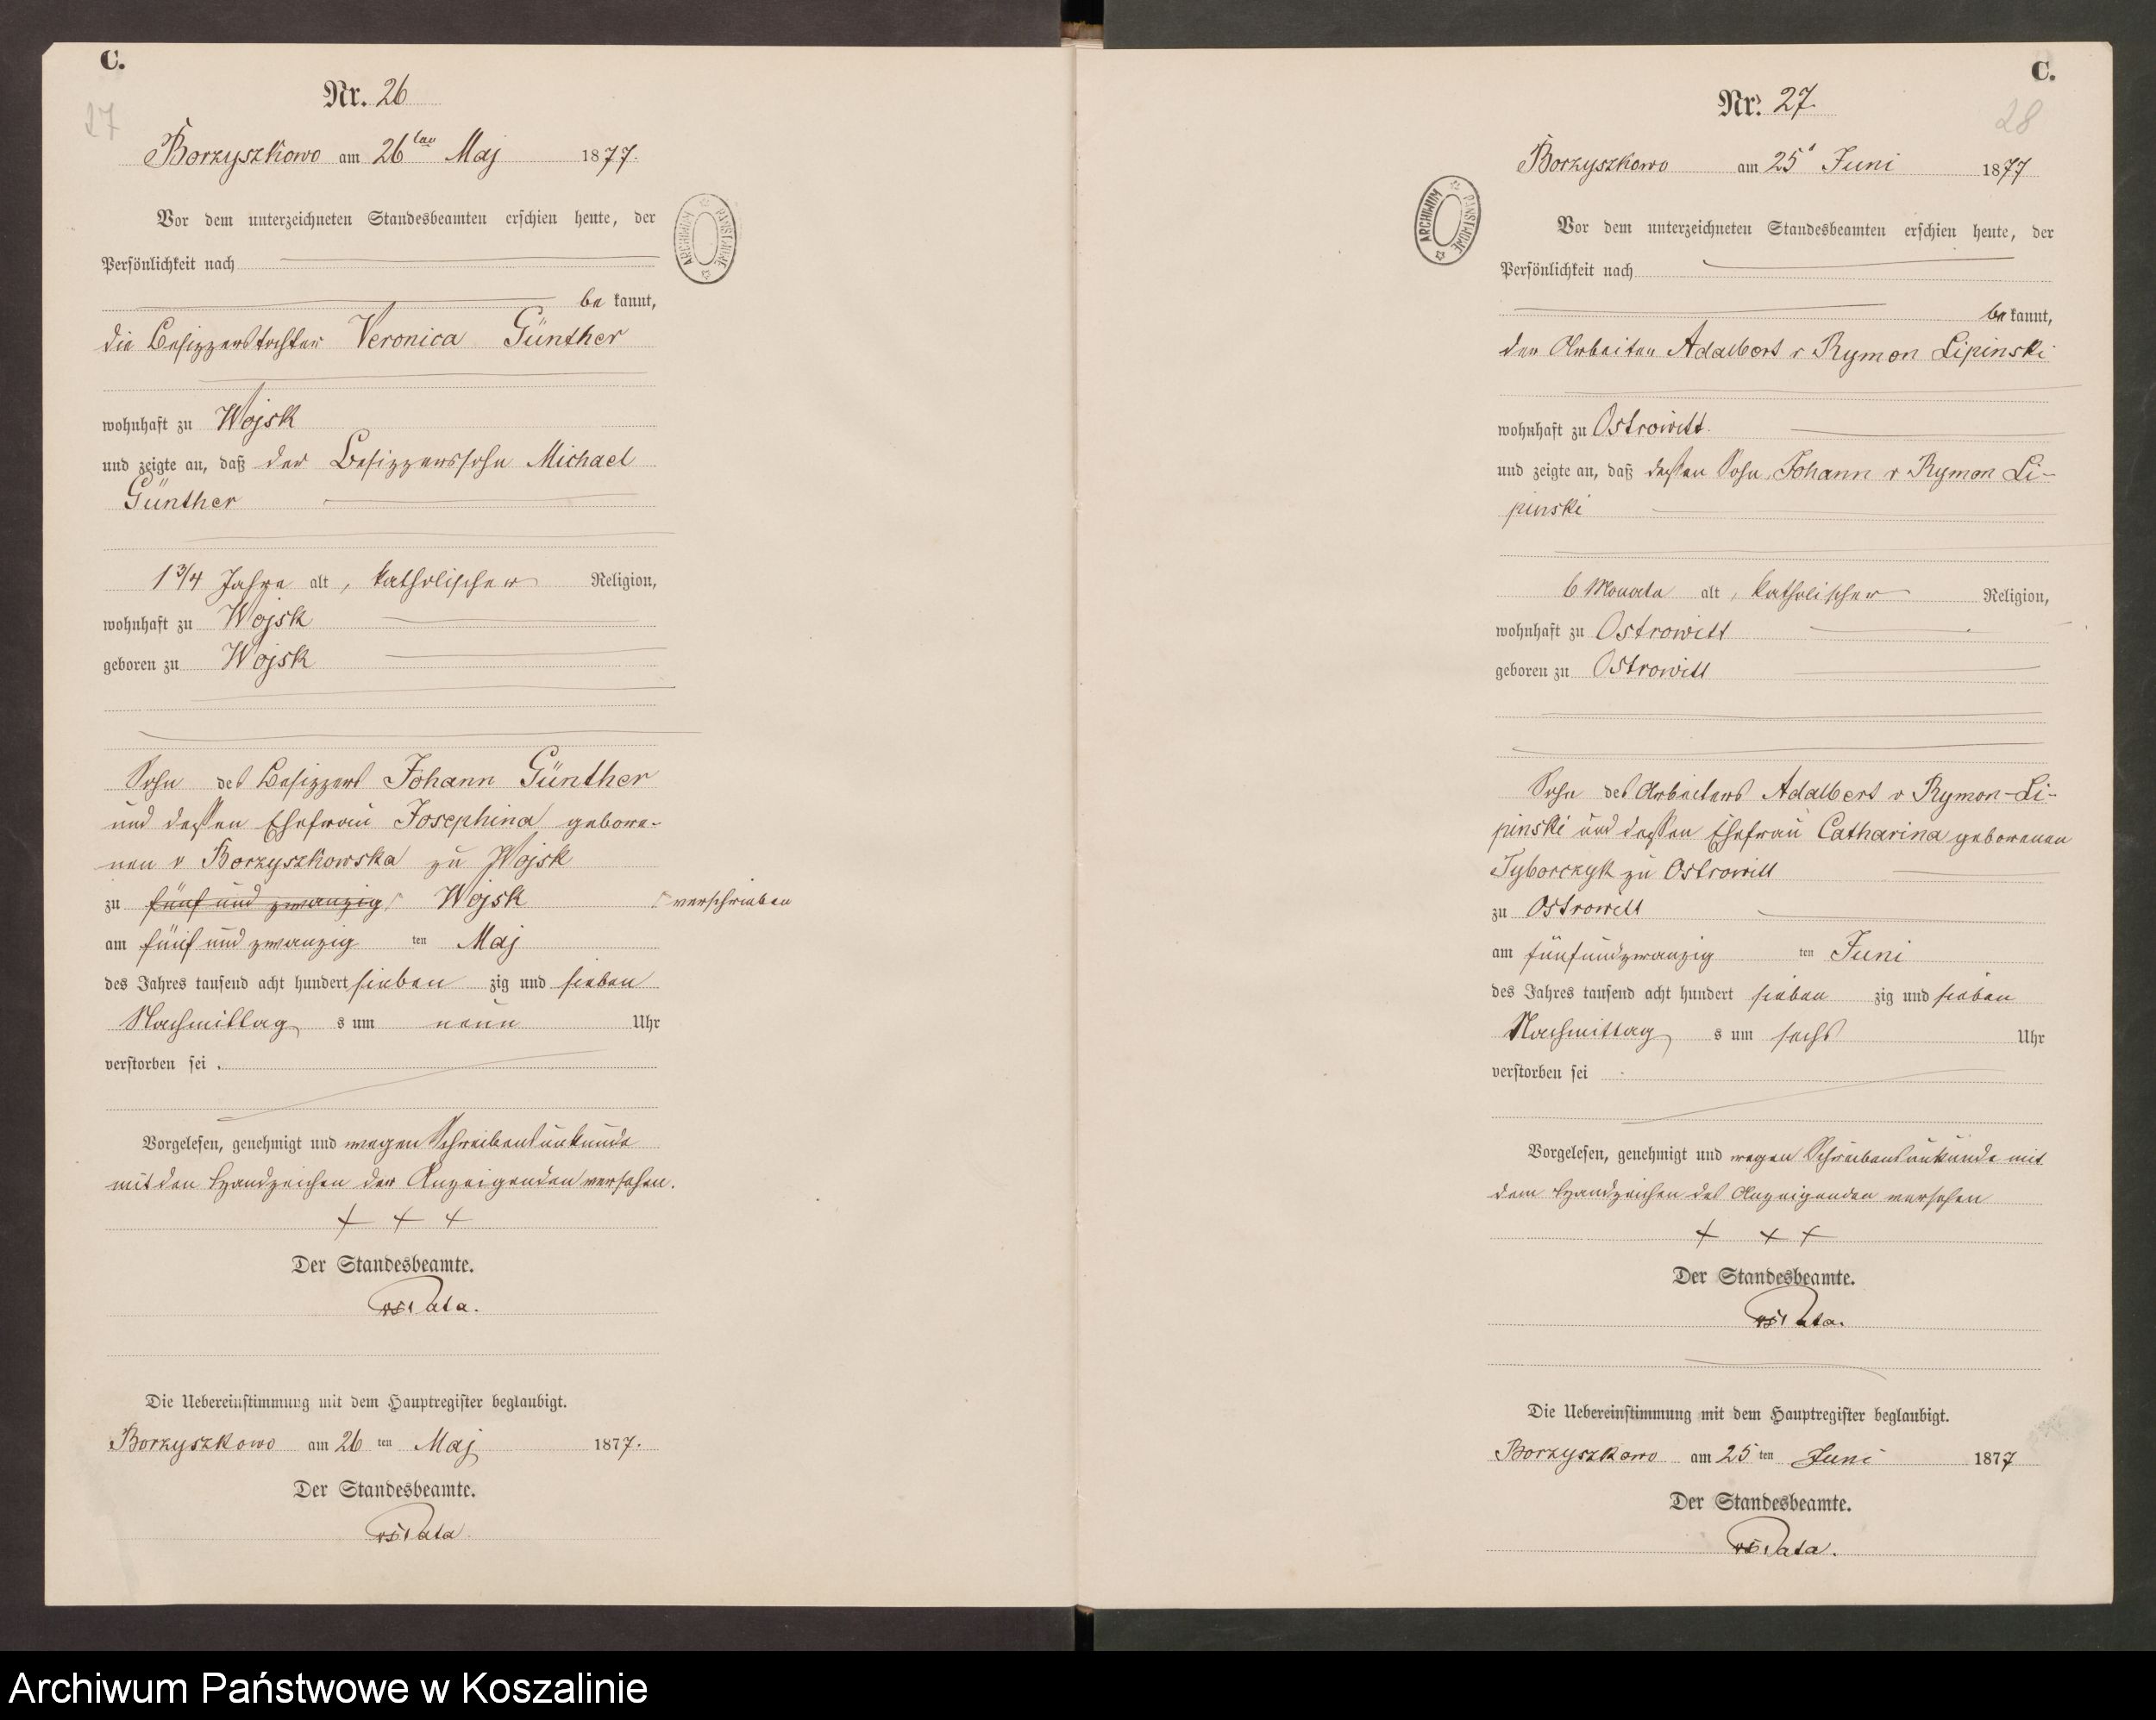 C.
Nr. 26
27
Borzyszkowo am 26ten Maj 1877.
Vor dem unterzeichneten Standesbeamten erschien heute, der
Persönlichkeit nach
be kannt,
die Besizzerstochter Veronica Günther
wohnhaft zu Wojsk
und zeigte an, daß der Besizzerssohn Michael
Günther
1 3/4 Jahre alt, katholischer Religion,
wohnhaft zu Wojsk
geboren zu Wojsk
Sohn des Besizzers Johann Günther
und dessen Ehefrau Josephina gebore-
nen v Borzyszkowska zu Wojsk
zu fünf und zwanzig Wojsk verschrieben
am fünf und zwanzig ten Maj
des Jahres tausend acht hundert sieben zig und sieben
Nachmittag s um neun Uhr
verstorben sei.
Vorgelesen, genehmigt und wegen Schreibensunkunde
mit den Handzeichen der Anzeigenden versehen.
+ + +
Der Standesbeamte.
Pata.
Die Uebereinstimmung mit dem Hauptregister beglaubigt.
Borzyszkowo am 26 ten Maj 1877.
Der Standesbeamte.
Pata.
ARCHIWUM PAŃSTWOWE
C.
Nr. 27.
28
Borzyszkowo am 25 Juni 1877
Vor dem unterzeichneten Standesbeamten erschien heute, der
Persönlichkeit nach
be kannt,
der Arbeiter Adalbert v Rymon Lipinski
wohnhaft zu Ostrowitt.
und zeigte an, daß dessen Sohn Johann v Rymon Li-
pinski
6 Monate alt, katholischer Religion,
wohnhaft zu Ostrowitt
geboren zu Ostrowitt
Sohn des Arbeiters Adalbert v Rymon-Li-
pinski und dessen Ehefrau Catharina geborenen
Tyborczyk zu Ostrowitt
zu Ostrowitt
am fünfundzwanzig ten Juni
des Jahres tausend acht hundert sieben zig und sieben
Nachmittag s um sechs Uhr
verstorben sei
Vorgelesen, genehmigt und wegen Schreibensunkunde mit
dem Handzeichen des Anzeigenden versehen
+ + +
Der Standesbeamte.
Pata.
Die Uebereinstimmung mit dem Hauptregister beglaubigt.
Borzyszkowo am 25 ten Juni 1877
Der Standesbeamte.
Pata.
ARCHIWUM PAŃSTWOWE
Archiwum Państwowe w Koszalinie